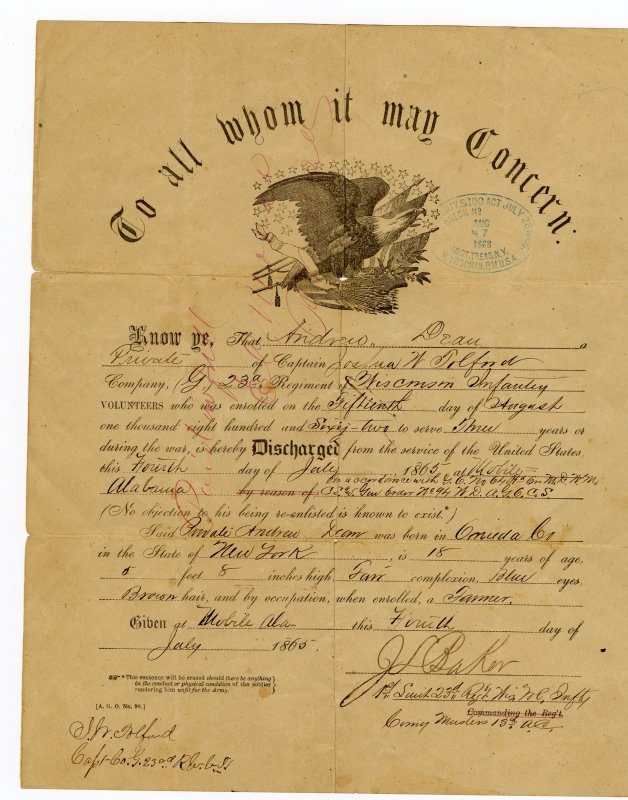 To all whom it may Concern:
CHECK No
AUG
7
1868
ASST. TREAS. N.Y.
P.M.U.S.A
Know ye, That Andrew Dean a
Private of Captain Joshua W Tolford
Company, (G,) 23d Regiment of Wisconsin Infantry
VOLUNTEERS who was enrolled on the Fifteenth day of August
one thousand eight hundred and Sixty-two to serve Three years or
during the war, is hereby Discharged from the service of the United States
this Fourth day of July, 1865, at Mobile
in accordance with
Alabama by reason of W.D. A.G.O. C.S.
(No objection to his being re-enlisted is known to exist.*)
Said Private Andrew Dean was born in Oneida Co
in the State of New York, is 18 years of age,
5 feet 8 inches high, Fair complexion, Blue eyes,
Brown hair, and by occupation, when enrolled, a Farmer.
Given at Mobile Ala this Fourth day of
July 1865.
*This sentence will be erased should there be anything
in the conduct or physical condition of the soldier
rendering him unfit for the Army.
[A. G. O. No. 99.]
J L Baker
1st Lieut 23d Regt Wis Vol, Infty
Commanding the Reg't.
Comg Musters 13th A.C.
J. W. Tolford
Capt Co. G. 23rd